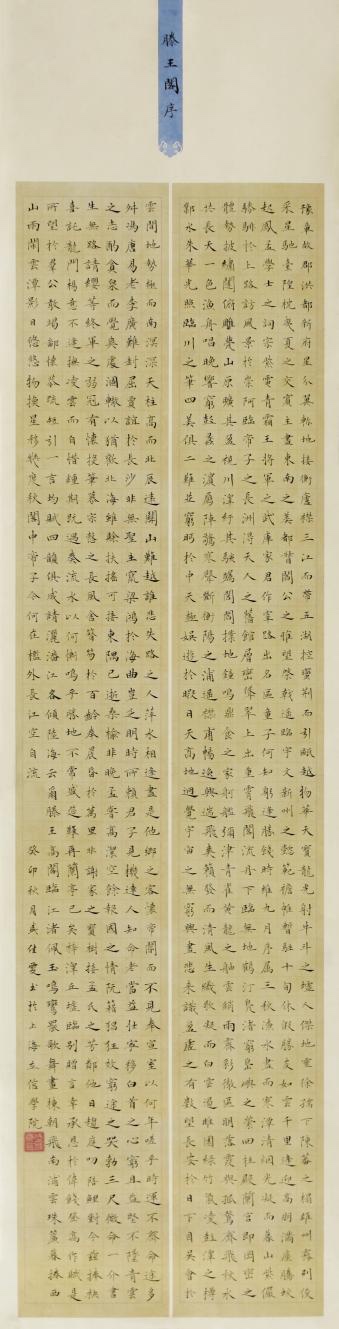 滕王閣序
豫章故郡洪都新府星分翼軫地接衡廬襟三江而帶五湖控蠻荊而引甌越物華天寶龍光射牛斗之墟人傑地靈徐孺下陳蕃之榻雄州霧列俊
采星馳臺隍枕夷夏之交賓主盡東南之美都督閻公之雅望棨戟遙臨宇文新州之懿範襜帷暫駐十旬休假勝友如雲千里逢迎高朋滿座騰蛟
起鳳孟學士之詞宗紫電青霜王將軍之武庫家君作宰路出名區童子何知躬逢勝餞時維九月序屬三秋潦水盡而寒潭清烟光凝而暮山紫儼
驂騑於上路訪風景於崇阿臨帝子之長洲得天人之舊館層巒聳翠上出重霄飛閣流丹下臨無地鶴汀鳧渚窮島嶼之縈回桂殿蘭宮即岡巒之
體勢披繡闥俯雕甍山原曠其盈視川澤紆其駭矚閭閻撲地鐘鳴鼎食之家舸艦彌津青雀黃龍之舳雲銷雨霽彩徹區明落霞與孤鶩齊飛秋水
共長天一色漁舟唱晚響窮彭蠡之濱雁陣驚寒聲斷衡陽之浦遙襟甫暢逸興遄飛爽籟發而清風生纖歌凝而白雲遏睢園綠竹氣凌彭澤之樽
鄴水朱華光照臨川之筆四美俱二難並窮睇眄於中天極娛遊於暇日天高地迥覺宇宙之無窮興盡悲來識盈虛之有數望長安於日下目吳會於
雲間地勢極而南溟深天柱高而北辰遠關山難越誰悲失路之人萍水相逢盡是他鄉之客懷帝閽而不見奉宣室以何年嗟乎時運不齊命途多
舛馮唐易老李廣難封屈賈誼於長沙非無聖主竄梁鴻於海曲豈乏明時所賴君子見機達人知命老當益壯寧移白首之心窮且益堅不墜青雲
之志酌貪泉而覺爽處涸轍以猶歡北海雖賒扶搖可接東隅已逝桑榆非晚孟嘗高潔空餘報國之情阮籍猖狂豈效窮途之哭勃三尺微命一介書
生無路請纓等終軍之弱冠有懷投筆慕宗慤之長風舍簪笏於百齡奉晨昏於萬里非謝家之寶樹接孟氏之芳鄰他日趨庭叨陪鯉對今茲捧袂
喜託龍門楊意不逢撫凌雲而自惜鍾期既遇奏流水以何慚嗚乎勝地不常盛筵難再蘭亭已矣梓澤丘墟臨別贈言幸承恩於偉餞登高作賦是
所望於羣公敢竭鄙懷恭疏短引一言均賦四韻俱成請灑潘江各傾陸海云爾滕王高閣臨江渚佩玉鳴鸞罷歌舞畫棟朝飛南浦雲珠簾暮捲西
山雨閒雲潭影日悠悠物換星移幾度秋閣中帝子今何在檻外長江空自流
癸卯秋月盛仕雯書於上海立信學院